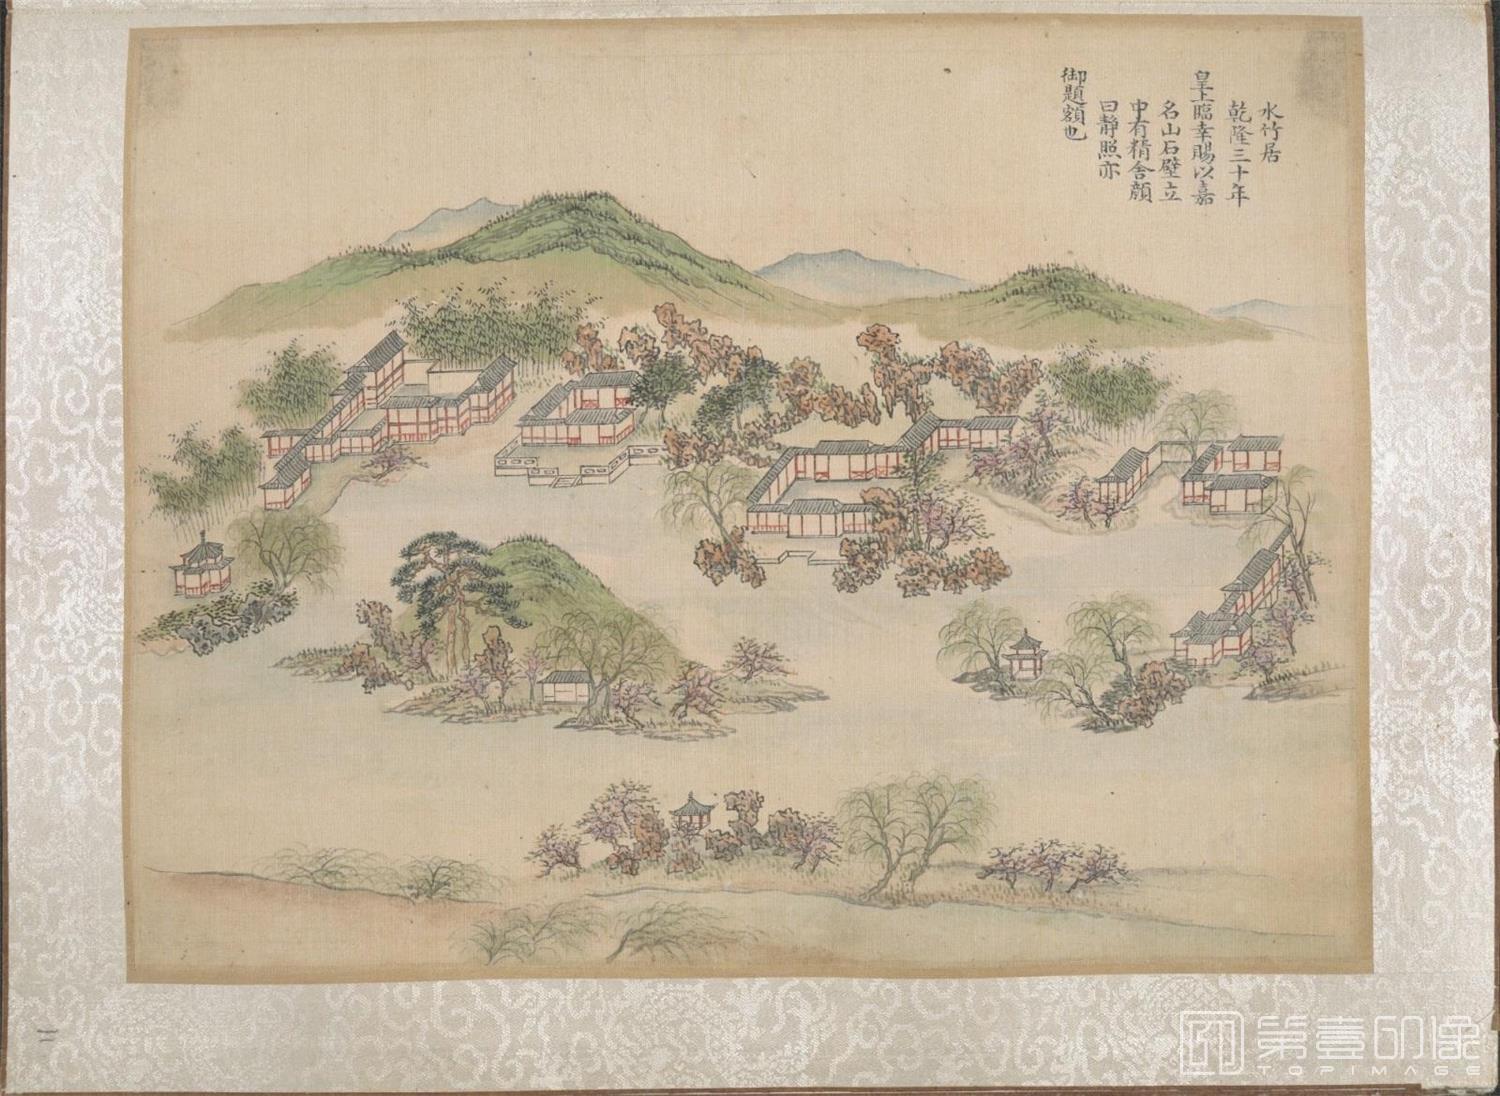 水竹居
乾隆三十年
皇上臨幸賜以嘉
名山石壁立
中有精舍顔
曰靜照亦
御題額也
二
第壹印像
TOPIMAGE